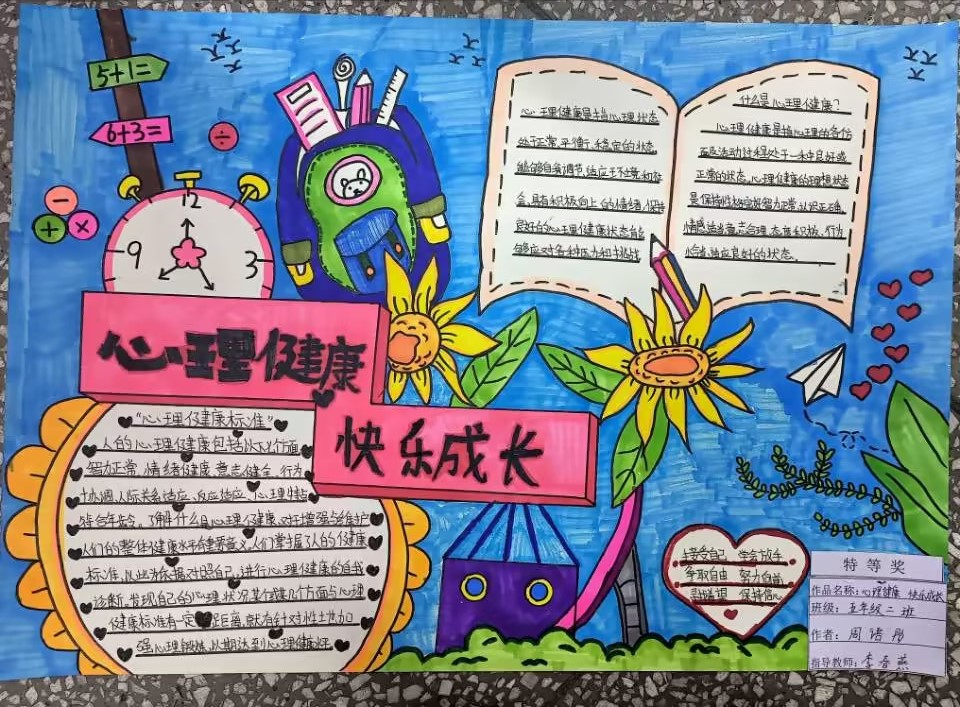 5+1=
6+3=
÷
−
+
×
12
9
3
心理健康
快乐成长
心理健康是指心理状态
处于正常、平衡、稳定的状态,
能够自我调节、适应于环境和社
会,具有积极向上的情绪,保持
良好的心理健康状态有助
够应对各种压力和挑战
什么是心理健康?
心理健康是指心理的各个方
面及活动过程处于一种良好或
正常的状态。心理健康的理想状态
是保持性格完好、智力正常、认识正确、
情感适当、意志合理、态度积极、行为
恰当、适应良好的状态。
“心理健康标准”
人的心理健康包括以下几个面
智力正常、情绪健康、意志健全、行为
协调、人际关系适应、反应适应、心理特点
符合年龄。了解什么是心理健康对于增强与维护
人们的整体健康水平有重要意义。人们掌握了人的健康
标准,以此为依据对照自己,进行心理健康的自我
诊断。发现自己的心理状况某个或几个方面与心理
健康标准有一定距离,就有针对性地加
强心理锻炼,以期达到心理健康
接受自己 学会放手
争取自由 努力向前
保持信心
特等奖
作品名称:心理健康 快乐成长
班级:五年级二班
作者:周
指导教师:李春燕